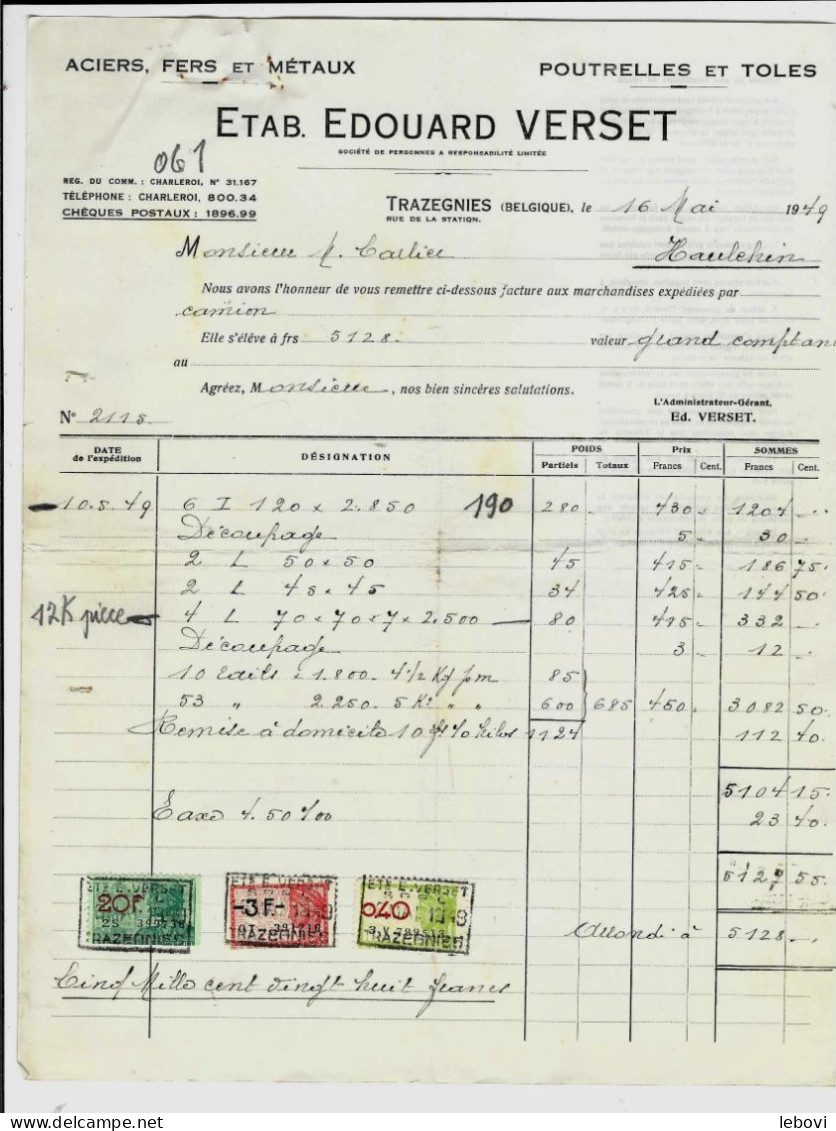 ACIERS, FERS ET MÉTAUX POUTRELLES ET TOLES
ETAB. EDOUARD VERSET
SOCIÉTÉ DE PERSONNES A RESPONSABILITÉ LIMITÉE
061
REG. DU COMM. : CHARLEROI, N° 31.167
TÉLÉPHONE : CHARLEROI, 800.34
CHÈQUES POSTAUX : 1896.99
TRAZEGNIES (BELGIQUE), le 16 Mai 1949
RUE DE LA STATION.
Monsieur M. Carlier Haulchin
Nous avons l'honneur de vous remettre ci-dessous facture aux marchandises expédiées par
camion
Elle s'élève à frs 5128.- valeur grand comptant
au
Agréez, Monsieur, nos bien sincères salutations.
L'Administrateur-Gérant,
Ed. VERSET.
N° 2115
DATE de l'expédition DÉSIGNATION POIDS Prix SOMMES
Partiels Totaux Francs Cent. Francs Cent.
10.5.49 6 I 120 x 2.850 190 280 430 - 1204 -
Découpage 5 - 30 -
2 L 50 x 50 45 415 - 186 75
2 L 45 x 45 34 425 - 144 50
12K pièce 4 L 70 x 70 x 7 x 2.500 80 415 - 332 -
Découpage 3 - 12 -
10 1.800 - 4 1/2 Kg p.m 85
53 " 2.250 . 5 K° " " 600 685 450 - 3082 50
Remise à domicile 10 frs % kilos 1124 112 40
5104 15
Taxe 4.50 %00 23 40
5127 55
Arrondi à 5128 -
ETS E. VERSET
20F
TRAZEGNIES
ETS E. VERSET
-3F-
TRAZEGNIES
ETS E. VERSET
0.40
TRAZEGNIES
Cinq Mille cent vingt huit francs
lebovi